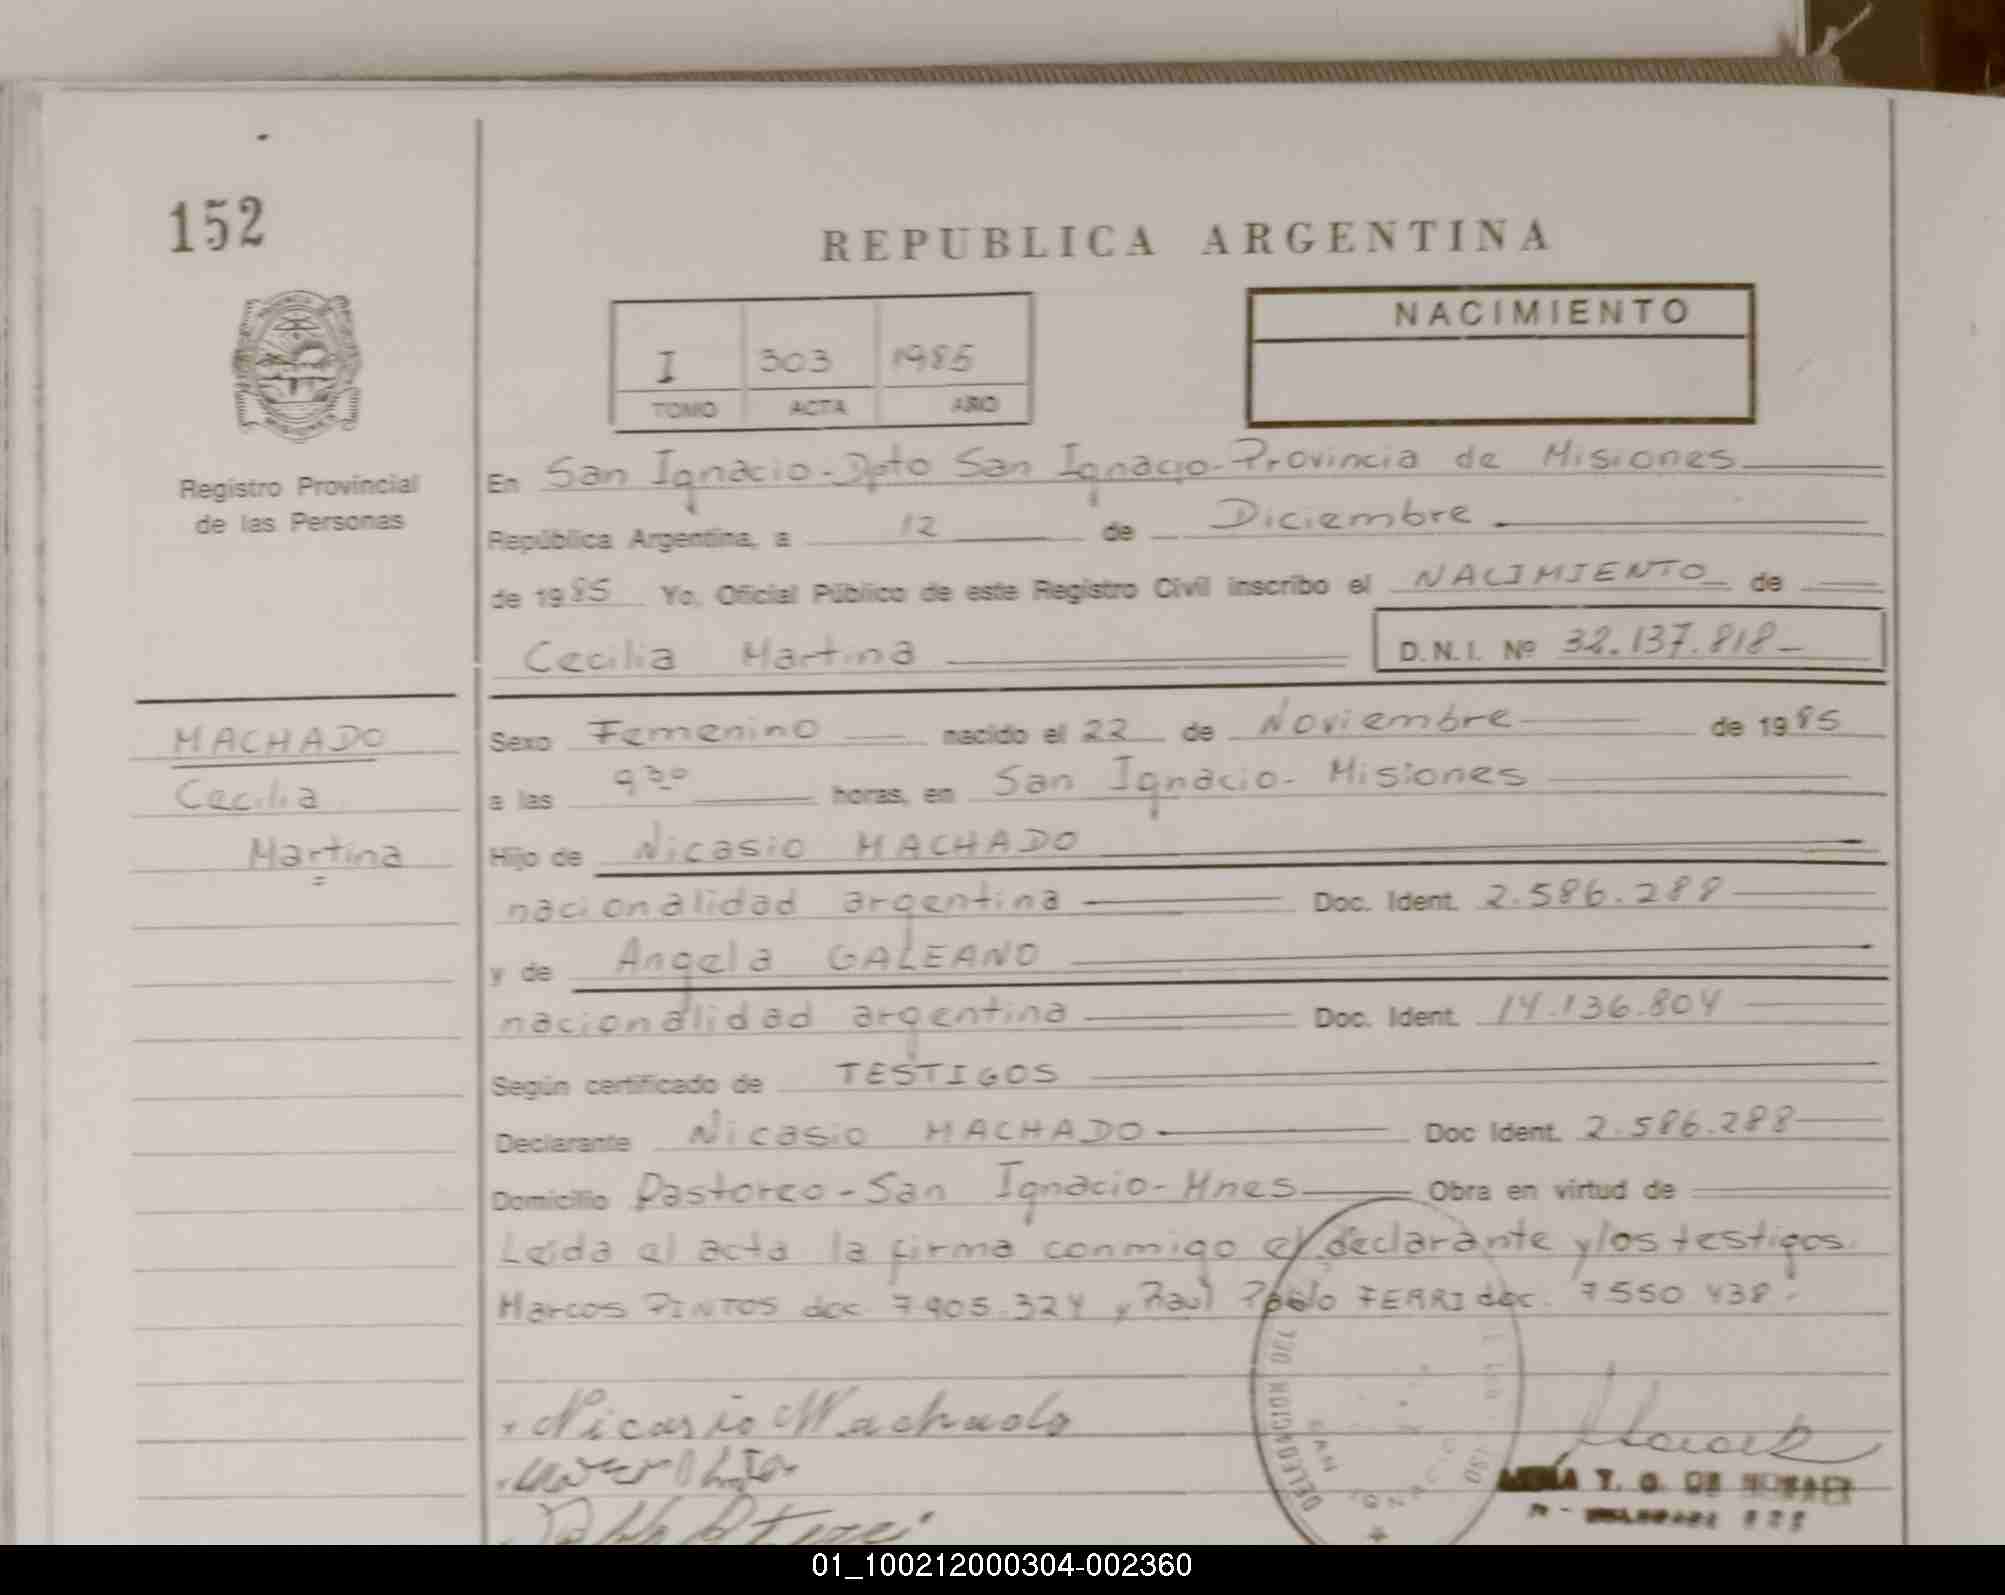 152
REPUBLICA ARGENTINA
NACIMIENTO
I 303 1985
TOMO ACTA AÑO
Registro Provincial
de las Personas
En San Ignacio - Dpto San Ignacio - Provincia de Misiones
República Argentina, a 12 de Diciembre
de 1985 Yo, Oficial Público de este Registro Civil inscribo el NACIMIENTO de
Cecilia Martina D.N.I. Nº 32.137.818
MACHADO
Cecilia
Martina
Sexo Femenino nacido el 22 de Noviembre de 1985
a las 9 30 horas, en San Ignacio - Misiones
Hijo de Nicasio MACHADO
nacionalidad argentina Doc. Ident. 2.586.288
y de Angela GALEANO
nacionalidad argentina Doc. Ident. 14.136.804
Según certificado de TESTIGOS
Declarante Nicasio MACHADO Doc Ident. 2.586.288
Domicilio Pastoreo - San Ignacio - Mnes Obra en virtud de
Leida el acta la firma conmigo el declarante y los testigos.
Marcos PINTOS doc. 7.905.324 y Raul Pablo FERRI doc. 7550 438.
Nicasio Machado
DELEGACION DEL
SAN
01_100212000304-002360